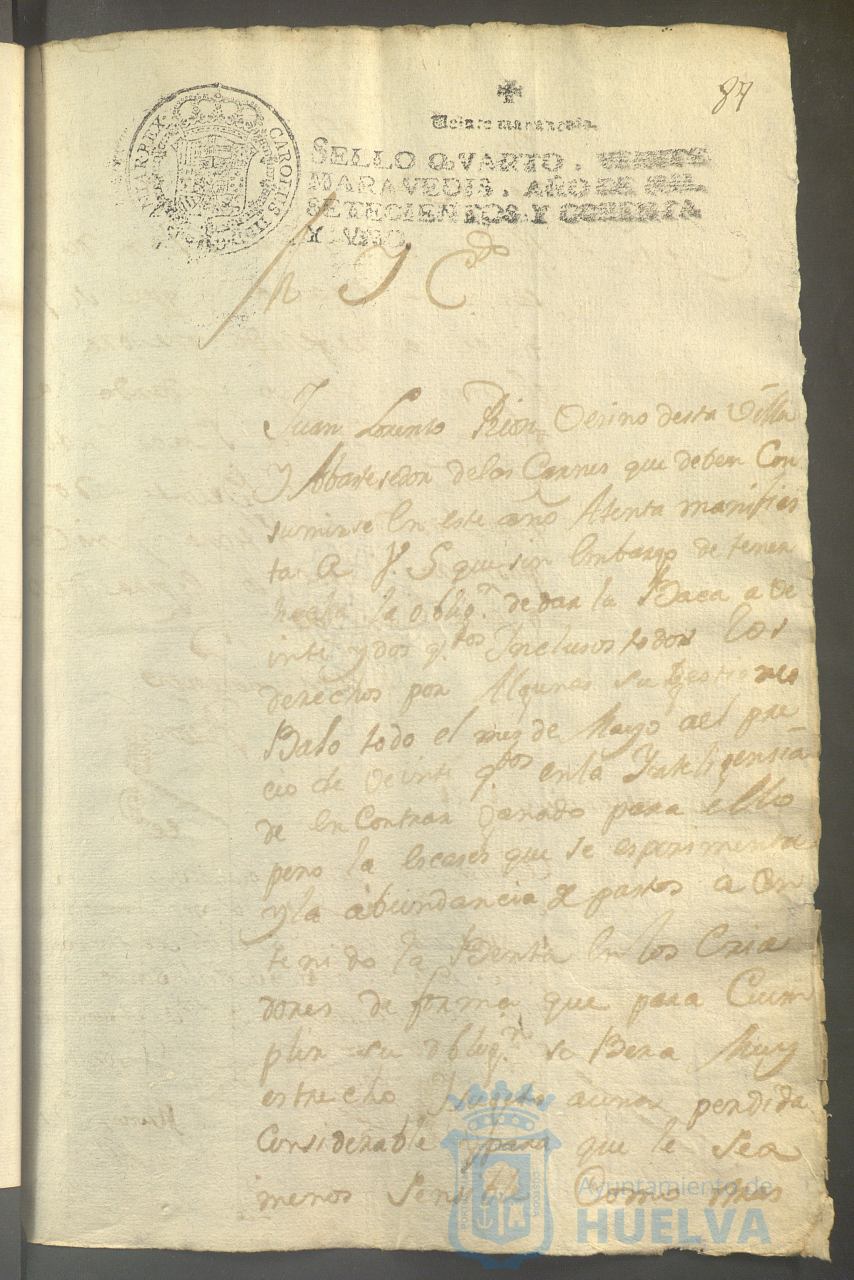 87
Veinte maravedis.
SELLO QVARTO, VEINTE
MARAVEDIS, AÑO DE MIL
SETECIENTOS Y OCHENTA
Y VNO
CAROLUS III
Y C
Juan Lorenzo Rion Vezino desta Villa
Y Abastesedor de las Carnes que deben Con
sumirse En este año Atento manifies
ta A V. S. que sin Embargo de tener
hecha la oblig.n de dar la Baca a Ve
inte y dos q.tos Inclusos todos los
derechos por Algunas sujestiones
Bajo todo el mes de Mayo al pre
cio de veinte q.tos en la Inteligensia
de Encontrar Ganado para ello
pero la Escases que se esperimenta
y la abundancia de pastos a en
tenido la Benta En los Cria
dores de forma que para Cum
plir su oblig.n se Bera Muy
estrecho sugeto a una perdida
Considerable y para que le sea
menos Sensible Como mas
Ayuntamiento de
HUELVA